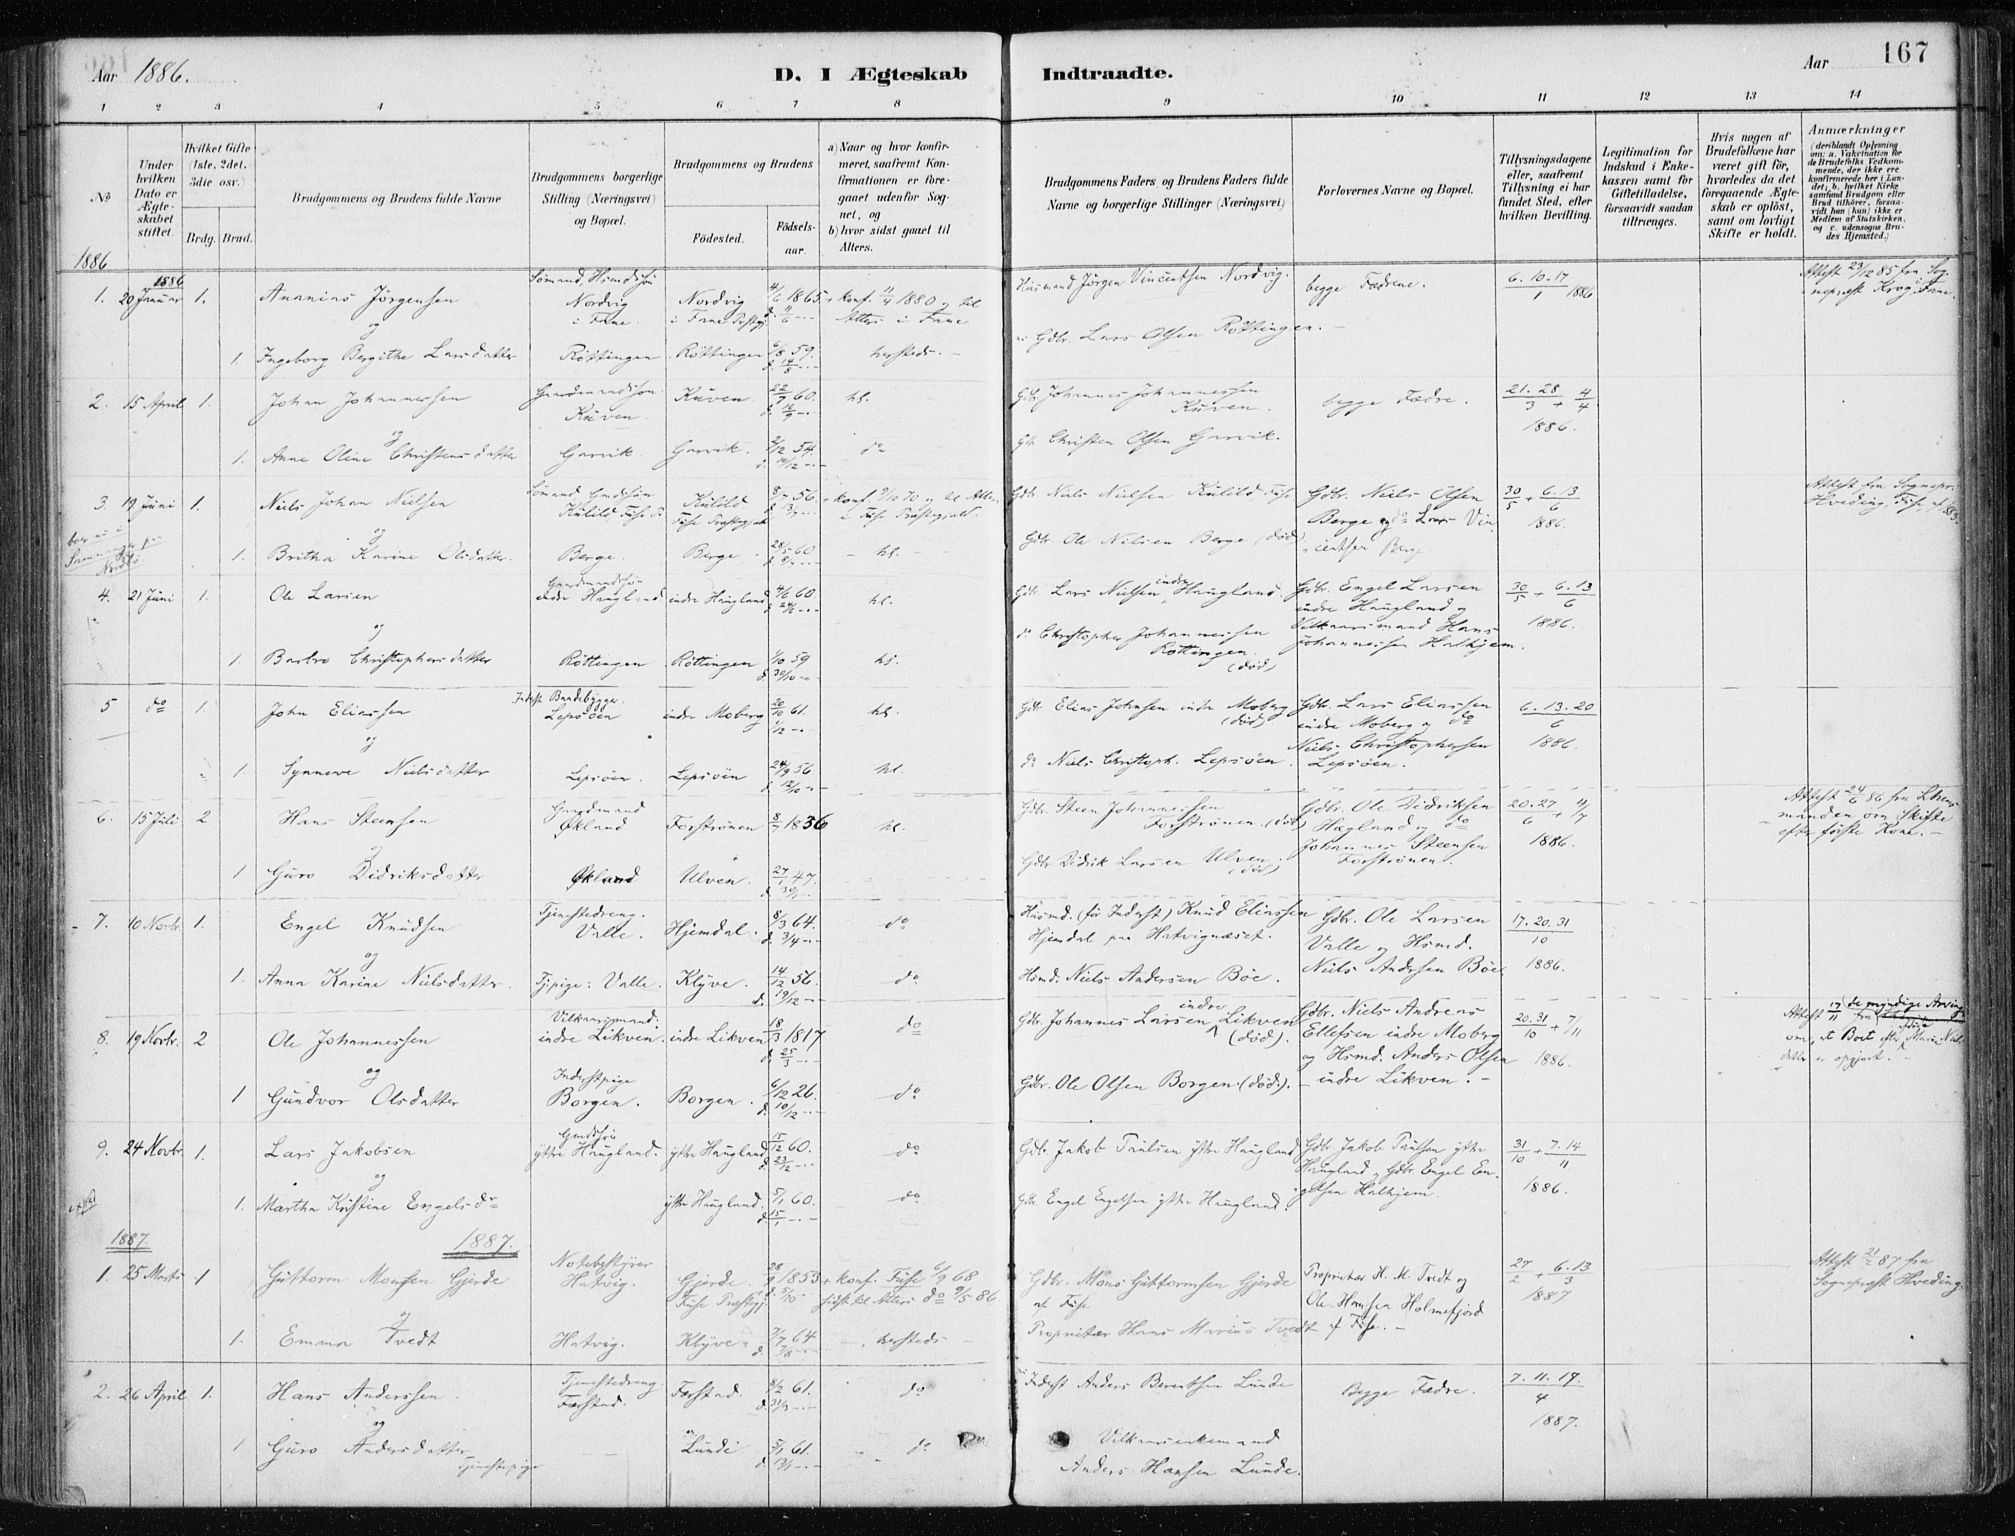 Aar 1886.
D. I Ægteskab Indtraadte.
Aar 167
1 2 3 4 5 6 7 8 9 10 11 12 13 14
No
Under hvilken Dato er Ægteskabet stiftet.
Hvilket Gifte (1ste, 2det, 3die osv.)
Brdg. Brud.
Brudgommens og Brudens fulde Navne
Brudgommens borgerlige Stilling (Næringsvei) og Bopæl.
Brudgommens og Brudens
Fødested.
Fødselsaar.
a) Naar og hvor konfirmeret, saafremt Konfirmationen er foregaaet udenfor Sognet, og
b) hvor sidst gaaet til Alters.
Brudgommens Faders og Brudens Faders fulde Navne og borgerlige Stillinger (Næringsvei)
Forlovernes Navne og Bopæl.
Tillysningsdagene eller, saafremt Tillysning ei har fundet Sted, efter hvilken Bevilling.
Legitimation for Indskud i Enkekassen samt for Giftetilladelse, forsaavidt saadan tiltrænges.
Hvis nogen af Brudefolkene har været gift før, hvorledes da det foregaaende Ægteskab er opløst, samt om lovligt Skifte er holdt.
Anmærkninger (deriblandt Oplysning om: a. Vakcination for de Brudefolks Vedkommende, der ikke ere konfirmerede her i Landet; b. hvilket Kirkesamfund Brudgom eller Brud tilhører, forsaavidt han (hun) ikke er Medlem af Statskirken, og c. udensogns Brudes Hjemsted.)
1886
1886
1. 20 Januar 1. Ananias Jörgensen Sömand, Husmdssön Nordvig i Fane Nordvig i Fane Præstgj. 4/6 1865. d. 11/6 konf. 11/4 1880 og til Alters i Fane Husmand Jörgen Vincentsen Nordvig. begge Fædrene. 6.10.17/1 1886 Attest 23/12 85 fra Sognepræst Krog Fane.
og
1. Ingeborg Bergithe Larsdatter Röttingen Röttingen 6/8 59. d. 14/8 hersteds. Gdbr. Lars Olsen Röttingen.
2. 15 April 1. Johan Johannessen Gaardmandssön Kuven. Kuven. 22/7 60. hs. Gdbr. Johannes Johannessen Kuven. begge Fædre. 21.28/3 + 4/4 1886.
og
1. Anne Oline Christensdatter Garvik. Garvik. 2/12 54. d. 10/12 do Gdb. Christen Olsen Garvik.
3. 19 Juni 1. Niels Johan Nielsen Sömand, Gmdssön Kulild Fuse P. Kulild Fuse Præstegjæld 8/7 56. konf. 9/10 70 og til Alters i Fuse Præstegjæld. Gdbr. Niels Nielsen Kulild Fuse Gdbr. Niels Olsen Berge og do Lars Vincentsen Berge 30/5 + 6.13/6 1886. Attest fra Sognepr. Hveding, Fuse
og
1. Britha Karine Olsdatter. Berge. Berge. 28/5 60. hs. Gdbr. Ole Nilsen Berge (död)
4. 21 Juni 1. Ole Larsen Gaardmandssön indre Haugland indre Haugland 4/6 60. d. 24/6 hs. Gdbr. Lars Nielsen indre Haugland. Gdbr. Engel Larsen indre Haugland og Vilkaarsmand Hans Johannessen Halhjem. 30/5 + 6.13/6 1886.
og
1. Barbro Christophersdatter Röttingen Röttingen 1/10 59 d. 30/10 hs. do Christopher Johannessen Röttingen. (död)
5 do 1. John Eliassen Inderst Baadebygger Lepsöen indre Moberg 20/10 61. hs. Gdbr. Elias Johnsen indre Moberg (död) Gdbr. Lars Eliassen indre Moberg og do Niels Christophersen Lepsöen. 6.13.20/6 1886.
og
1 Synneve Nielsdatter Lepsöen. Lepsöen 24/9 56. d. 12/10 hs. do Niels Christoph. Lepsöen.
6. 15 Juli 2 Hans Steensen Gaardmand Økland Forströnen 8/7 1836 hs. Gdbr. Steen Johannessen Forströnen. (död) Gdbr. Ole Didriksen Hægland og do Johannes Steensen Forströnen. 20.27/6 + 4/7 1886. Attest 24/6 86 fra Lensmanden om Skifte efter förste Kone.
og
1 Guro Didriksdatter Økland Ulven. 27/1 47. d. 30/1 Gdbr. Didrik Larsen Ulven. (död)
7. 10 Novbr. 1. Engel Knudsen Tjenestedreng. Valle. Hjemdal. 8/3 64. d. 3/4 do Husmd. (för Inderst) Knud Eliassen Hjemdal paa Hatvignæset. Gdbr. Ole Larsen Valle og Hsmd. Niels Andersen Böe. 17.20.31/10 1886.
og
1. Anna Karine Nielsdatter. Tjpige: Valle. Klyve. 14/12 56. d. 19/12 do Hsmd. Niels Andersen Böe.
8. 19 Novbr. 2 Ole Johannessen Vilkaarsmand: indre Likven. indre Likven 18/3 1817 d. 25/3 do Gdbr. Johannes Larsen indre Likven (död). Gdbr. Niels Andreas Ellefsen indre Moberg og Hsmd. Anders Olsen indre Likven. 20.31/10 + 7/11 1886. Attest 17/11 fra de myndige Arvinger om, at Boet efter Marie Nilsdatter er opgjort.
og
1 Gundvor Olsdatter Inderstpige Borgen. Borgen. 6/12 26. d. 10/12 do Gdbr. Ole Olsen Borgen (död).
9. 24 Novbr. 1. Lars Jakobsen Gmdssön ytre Haugland. ytre Haugland 15/12 60. d. 23/12 do Gdb. Jakob Paulsen ytre Haugland Gdbr. Jakob Paulsen ytre Haugland og Gdbr. Engel Engelsen Halhjem. 31/10 + 7.14/11 1886.
og
1. Martha Kristine Engelsdr ytre Haugland. 5/1 60. d. 15/1 do Gdbr. Engel Engelsen ytre Haugland.
1887. 1887.
1. 25 Marts 1 Guttorm Monsen Gjerde Notebestyrer Hatvig. Gjerde. Fuse Præstgj. 28/9 1853 d. 5/10 konf. Fuse 6/9 68 sidst til Alters do 9/5 86. Gdbr. Mons Guttormsen Gjerde af Fuse Proprietær H. M. Tvedt og Ole Hansen Holmefjord af Fuse. 27/2 + 6.13/3 1887 Attest 21/2 87 fra Sognepræst Hveding.
og
1. Emma Tvedt Hatvig. Klyve 7/7 64. d. 7/8 hersteds Proprietær Hans Marius Tvedt
2. 26 April 1. Hans Anderssen. Tjenestedreng. Forstad. Forstad. 8/2 61. do Inderst Anders Berentsen Lunde Begge Fædre. 7.11.17./4 1887.
og
1 Guro Andersdatter Tjenestepige Lunde 5/1 61. do Vilkaarsenkemand Anders Hansen Lunde.